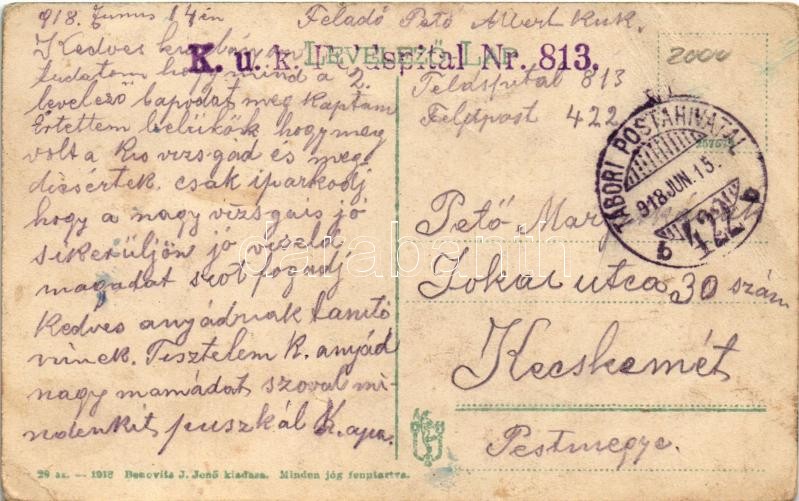 918. Junus 14 én
Kedves
tudatom hogy mind a 2.
levelező lapodat meg kaptam
Értettem belülök hogy meg
volt a kis vizsgád és meg
dissértek. csak iparkodj
hogy a nagy vizsgáis jó
sikerüljön jó viseld
magadat szot fogadj
Kedves anyádnak tanitó
ninek. Tisztelem K. anyád
nagy mamádat szoval mi-
ndenkit puszkál K. apa.
Feladó Pető Albert Kuk.
LEVELEZŐ LAP
K. u. k. Feldspital Nr. 813.
Feldspital 813
Feldpost 422
2000
TÁBORI POSTAHIVATAL
918 JUN. 15.
b 422 b
Pető
Jokai utca 30 szám
Kecskemét
Pestmegye.
29 sz. — 1918 Benovits J. Jenő kiadása. Minden jog fenntartva.
darabanth